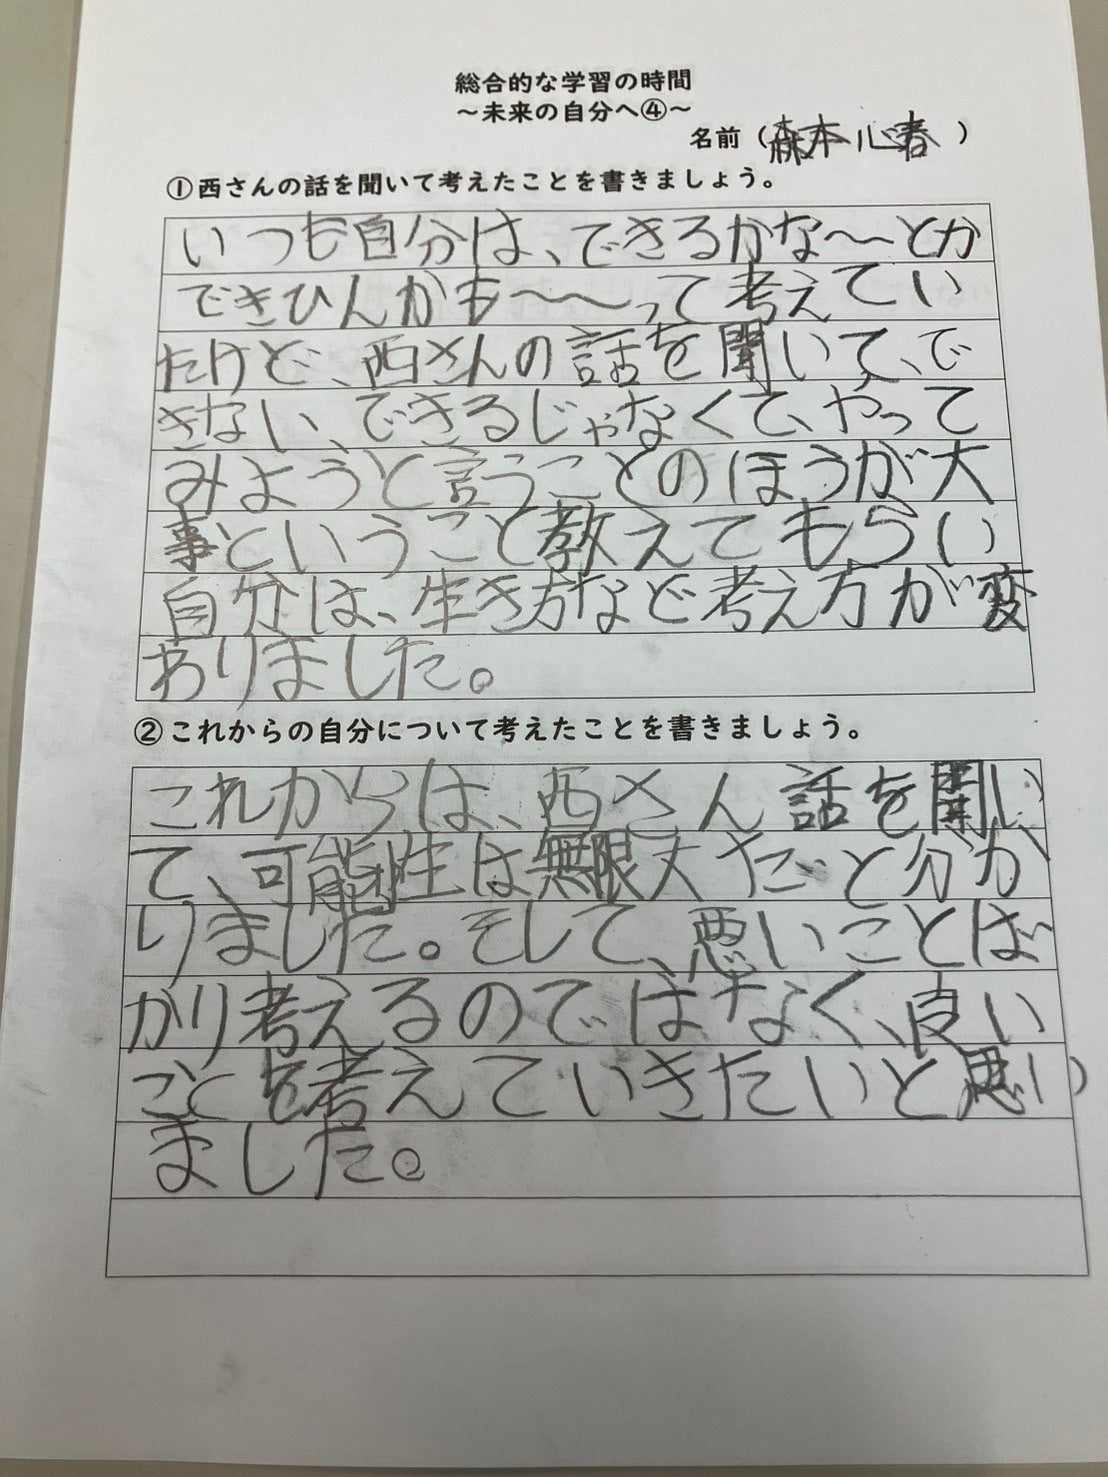 総合的な学習の時間
～未来の自分へ④～
名前（森本心春）
①西さんの話を聞いて考えたことを書きましょう。
いつも自分は、できるかな〜〜とか
できひんかも〜〜〜って考えてい
たけど、西さんの話を聞いて、で
きない、できるじゃなくて、やって
みようと言うことのほうが大
事ということ教えてもらい
自分は、生き方など考え方が変
わりました。
②これからの自分について考えたことを書きましょう。
これからは、西さん話を聞い
て、可能性は無限大だと分か
りました。そして、悪いことば
かり考えるのではなく、良い
ことを考えていきたいと思い
ました。